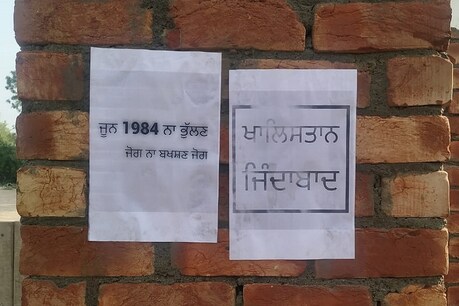 ਜੂਨ 1984 ਨਾ ਭੁੱਲਣ
ਜੋਗ ਨਾ ਬਖਸ਼ਣ ਜੋਗ
ਖਾਲਿਸਤਾਨ
ਜਿੰਦਾਬਾਦ